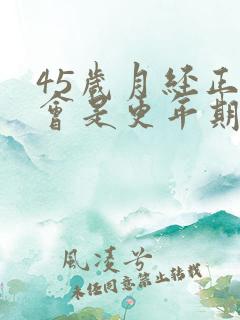 45岁月经正
会是更年期
风凌兮
未经同意禁止转载